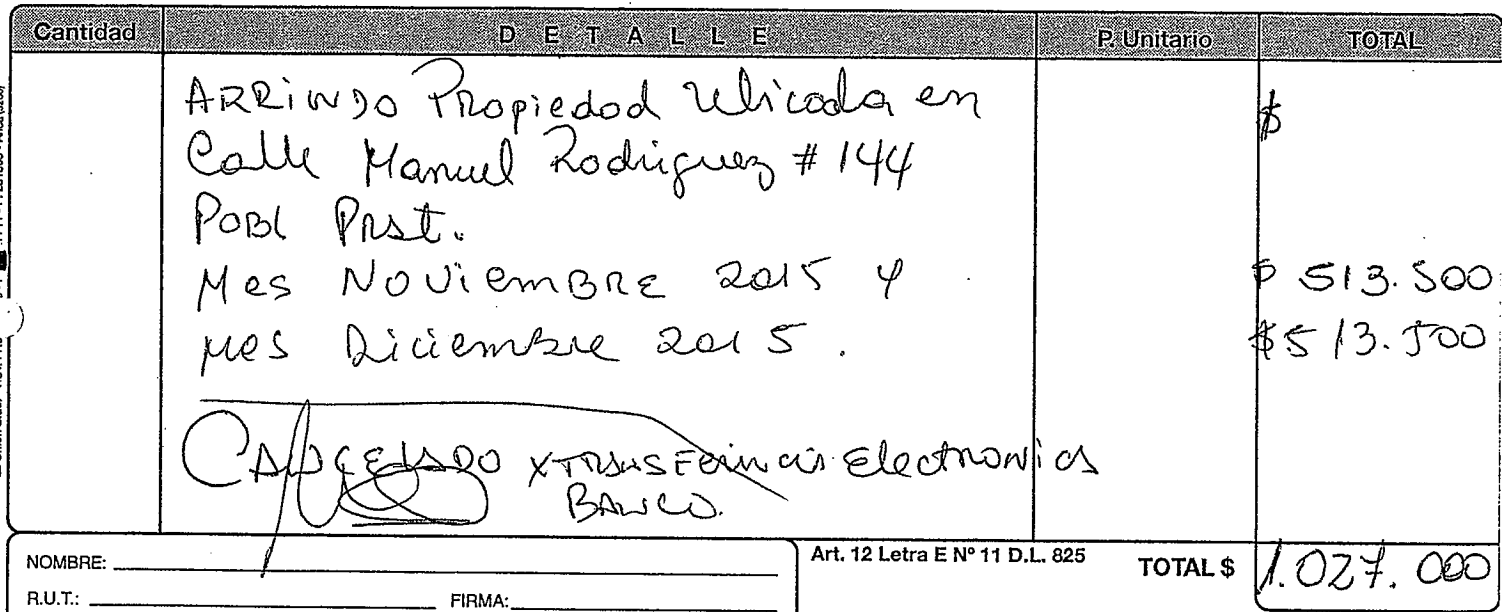 Cantidad DETALLE P. Unitario TOTAL
ARRiNDO Propiedad Ubicada en $
Calle Manuel Rodriguez # 144
POBl Prat.
Mes NOViemBRE 2015 y $ 513.500
mes Diciembre 2015. $ 513.500
CANCELADO x TRANSFerencia Electronica
BANCO.
NOMBRE:
Art. 12 Letra E Nº 11 D.L. 825 TOTAL $ 1.027.000
R.U.T.: FIRMA: